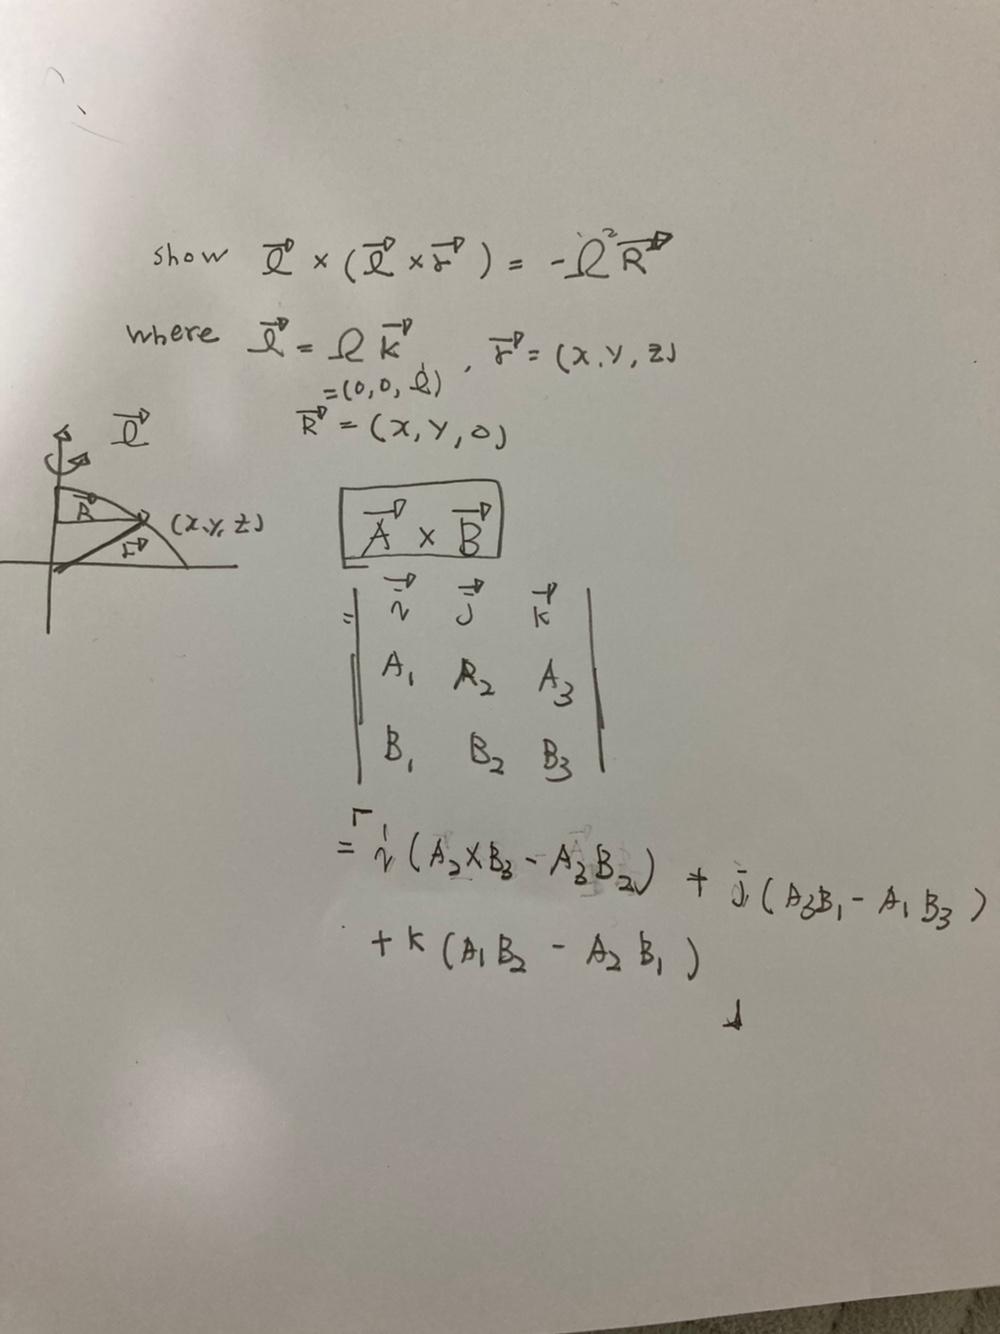 show Ω⃗ × (Ω⃗ × r⃗) = -Ω² R⃗
where Ω⃗ = Ω k⃗ , r⃗ = (x, y, z)
= (0, 0, Ω)
R⃗ = (x, y, 0)
Ω⃗
R⃗
(x, y, z)
r⃗
A⃗ × B⃗
= | i⃗ j⃗ k⃗ |
| A₁ A₂ A₃ |
| B₁ B₂ B₃ |
= i (A₂×B₃ - A₃B₂) + j (A₃B₁ - A₁B₃)
+ k (A₁B₂ - A₂B₁)